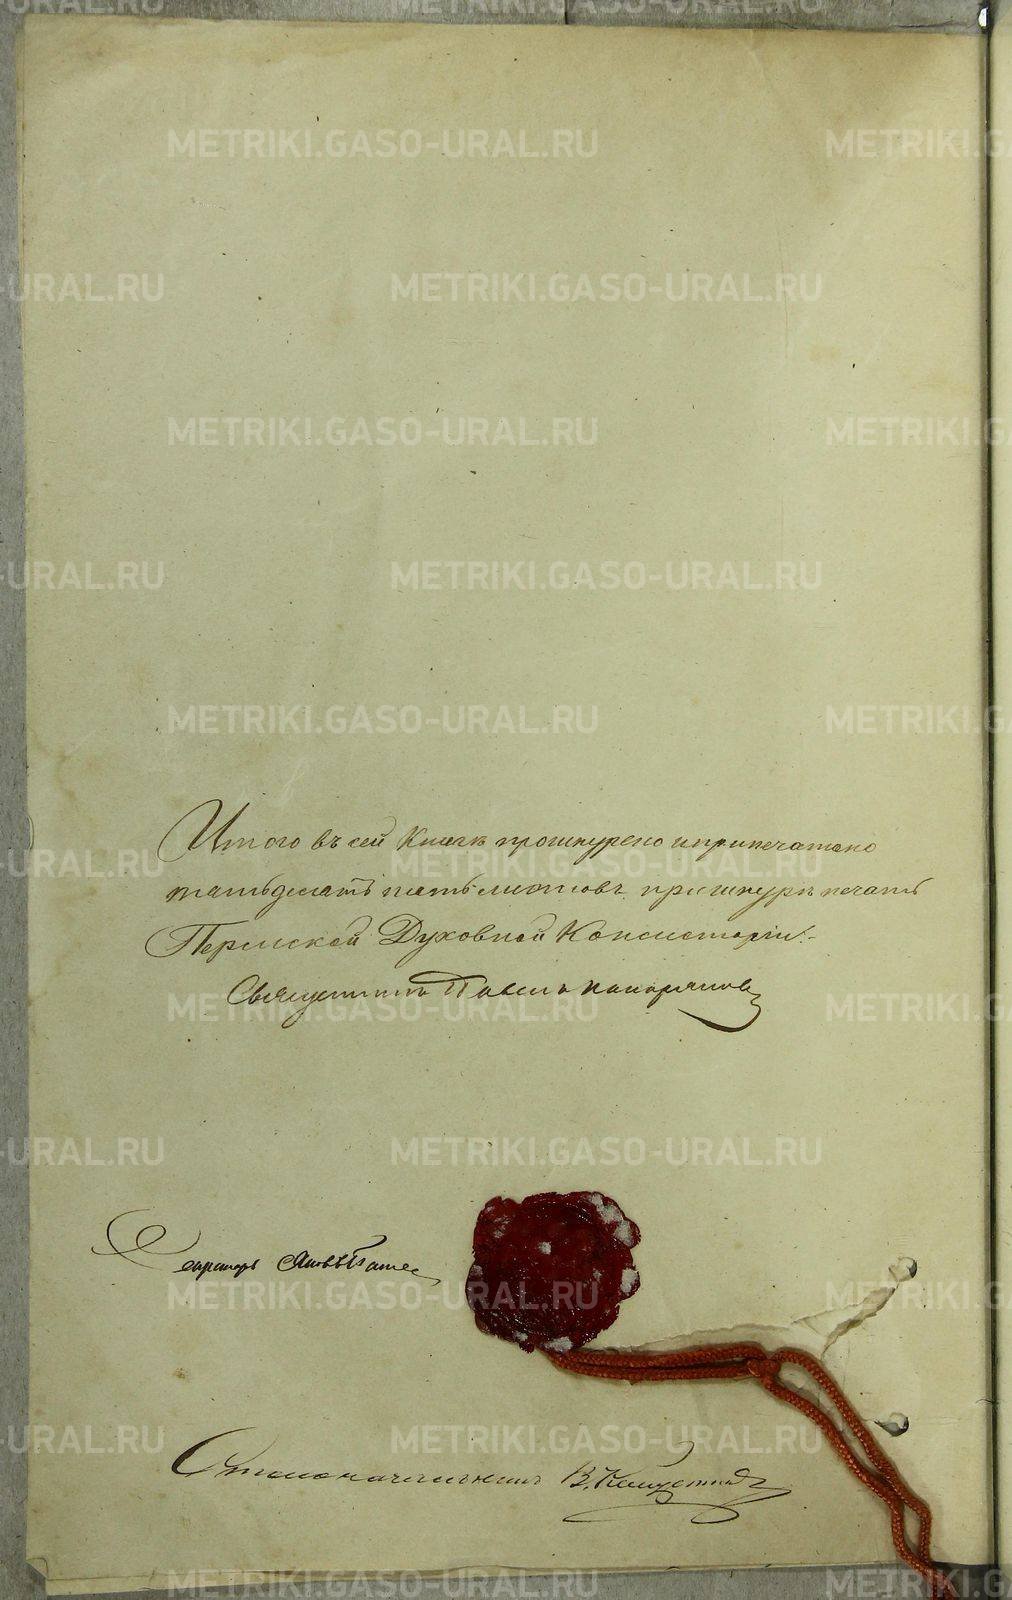 Итого въ сей Книгѣ прошнурено и припечатано
пятьдесятъ пять листовъ, при шнурѣ печать
Пермской Духовной Консисторіи.
Священникъ Павелъ
Секретарь Яковъ
Столоначальникъ В.
METRIKI.GASO-URAL.RU